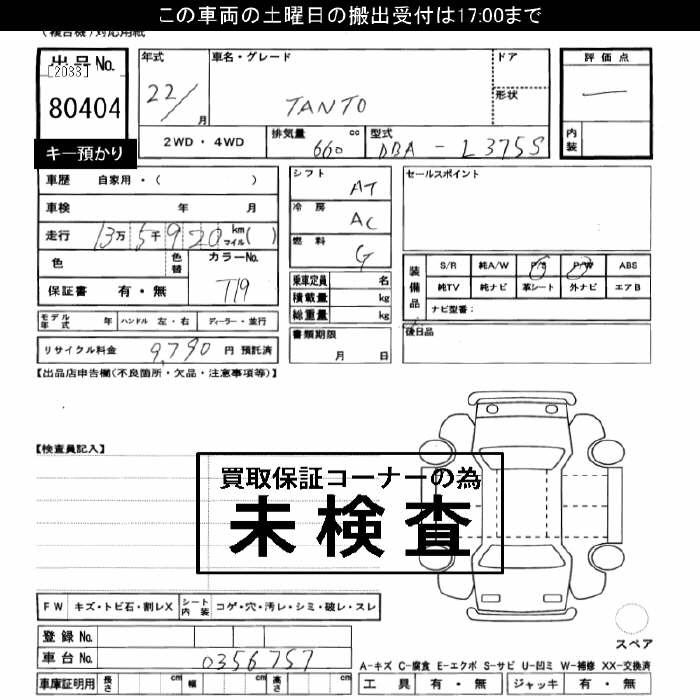 この車両の土曜日の搬出受付は17:00まで
(複合機)対応用紙
出品No.
[2033]
80404
キー預かり
年式
22/
月
車名・グレード
TANTO
ドア
形状
評価点
―
内装
2WD・4WD
排気量
660
cc
型式
DBA - L375S
車歴 自家用・( )
車検 年 月
走行 13万 5千 920 km マイル( )
色
色替
カラーNo.
T19
保証書 有・無
シフト
AT
冷房
AC
燃料
G
乗車定員 名
積載量 kg
総重量 kg
書類期限
月 日
セールスポイント
装備品
S/R 純A/W P/S P/W ABS
純TV 純ナビ 革シート 外ナビ エアB
ナビ型番:
後日品
モデル年式 年 ハンドル 左・右 ディーラー・並行
リサイクル料金 9,790 円 預託済
【出品店申告欄(不良箇所・欠品・注意事項等)】
【検査員記入】
買取保証コーナーの為
未検査
FW キズ・トビ石・割レX シート内装 コゲ・穴・汚レ・シミ・破レ・スレ
登録No.
車台No. 0356757
車庫証明用 長さ cm 幅 cm 高さ cm
スペア
A-キズ C-腐食 E-エクボ S-サビ U-凹ミ W-補修 XX-交換済
工具 有・無 ジャッキ 有・無